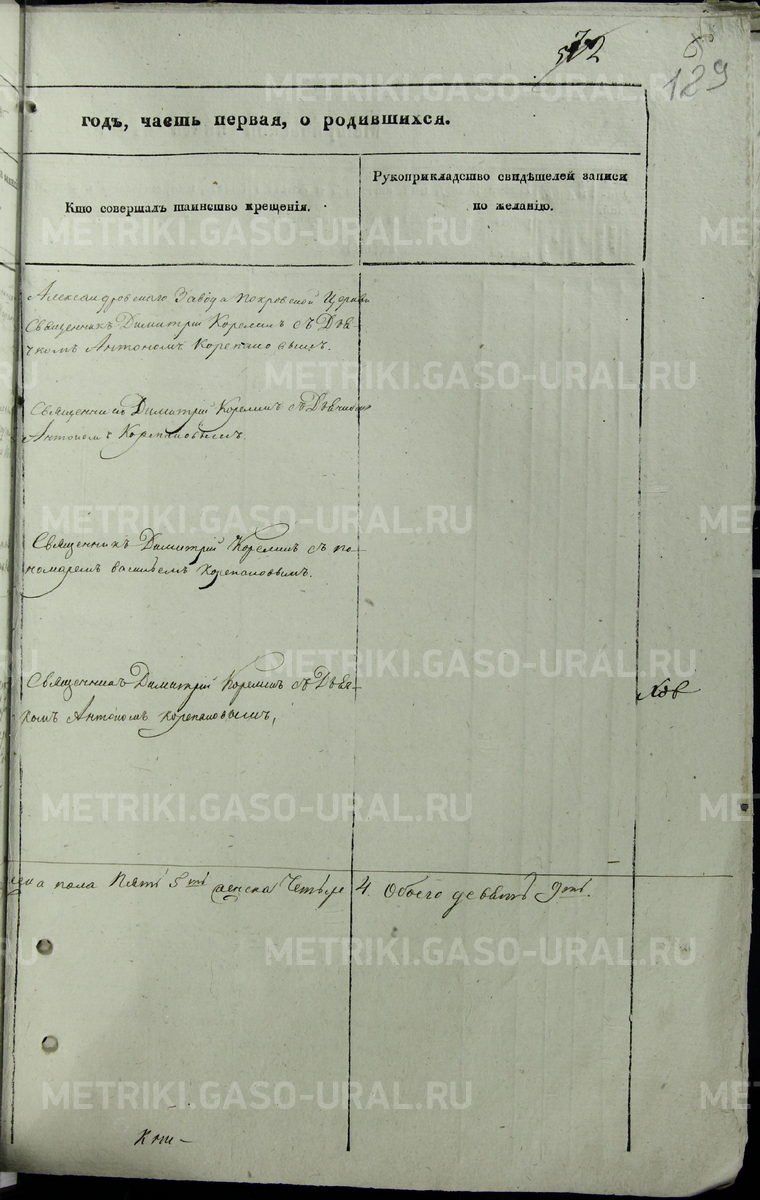 572
129
годъ, часть первая, о родившихся.
Кто совершалъ таинство крещенія.
Рукоприкладство свидѣтелей записи
по желанію.
Александровскаго Завода Покровской Церкви
Священникъ Димитрій Корелинъ съ Дья-
чкомъ Антономъ Корепановымъ.
Священникъ Димитрій Корелинъ съ Дьячкомъ
Антономъ Корепановымъ.
Священникъ Димитрій Корелинъ съ по-
номаремъ Васильемъ Корепановымъ.
Священникъ Димитрій Корелинъ съ Дья-
комъ Антономъ Корепановымъ,
пола Пять 5ть женска Четыре 4. Обоего девять 9ть.
METRIKI.GASO-URAL.RU